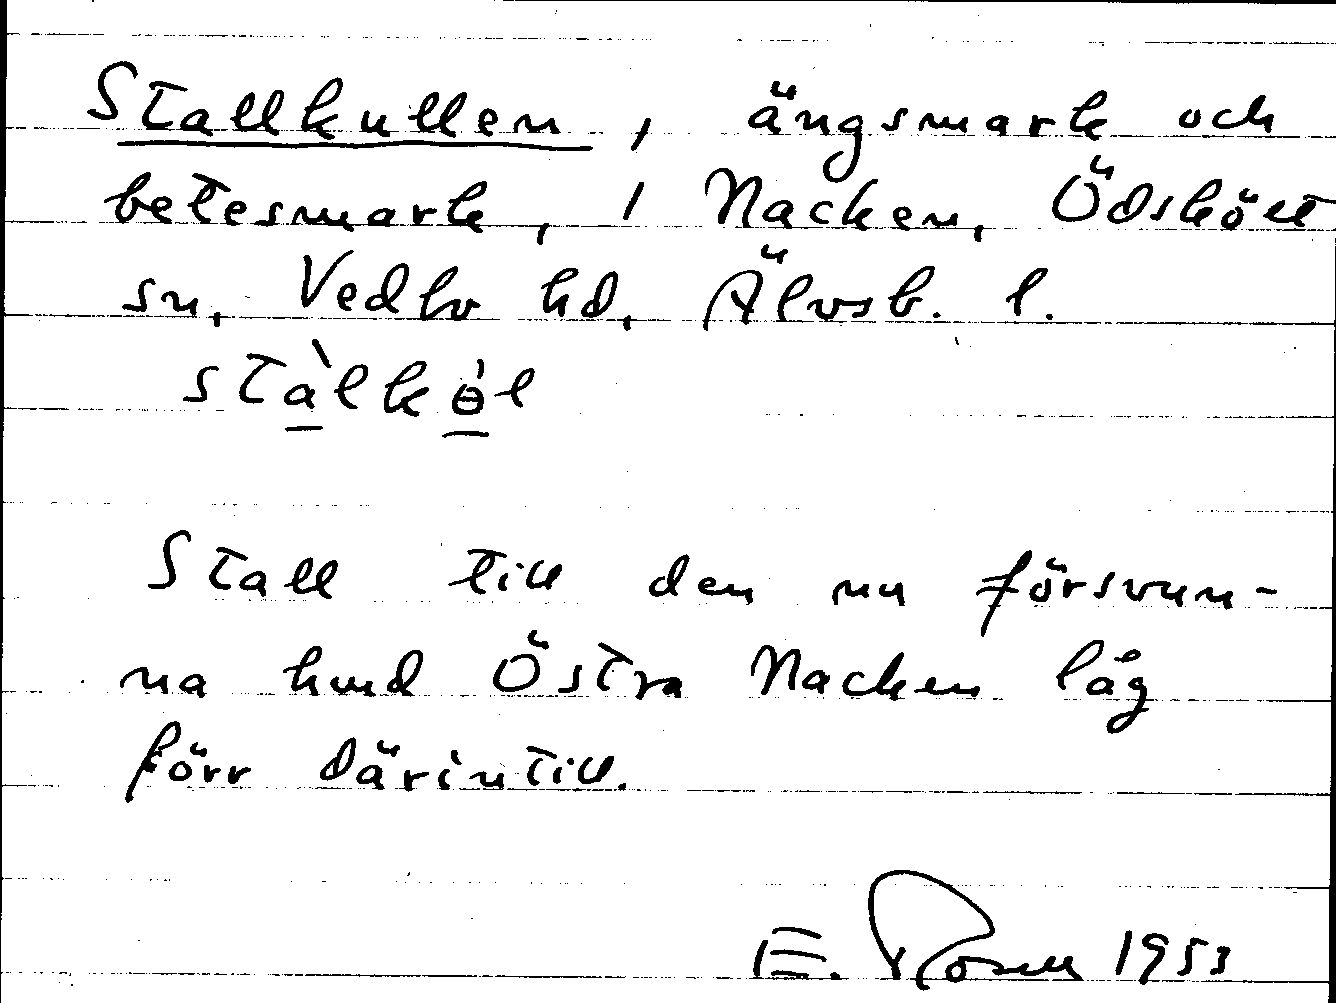 Stallkullen, ängsmark och
betesmark, i Nacken, Ödskölt
sn, Vedbo hd, Älvsb. l.
stàlkө́l
Stall till den nu försvun-
na hmd Östra Nacken låg
förr därintill.
E. Rosell 1953